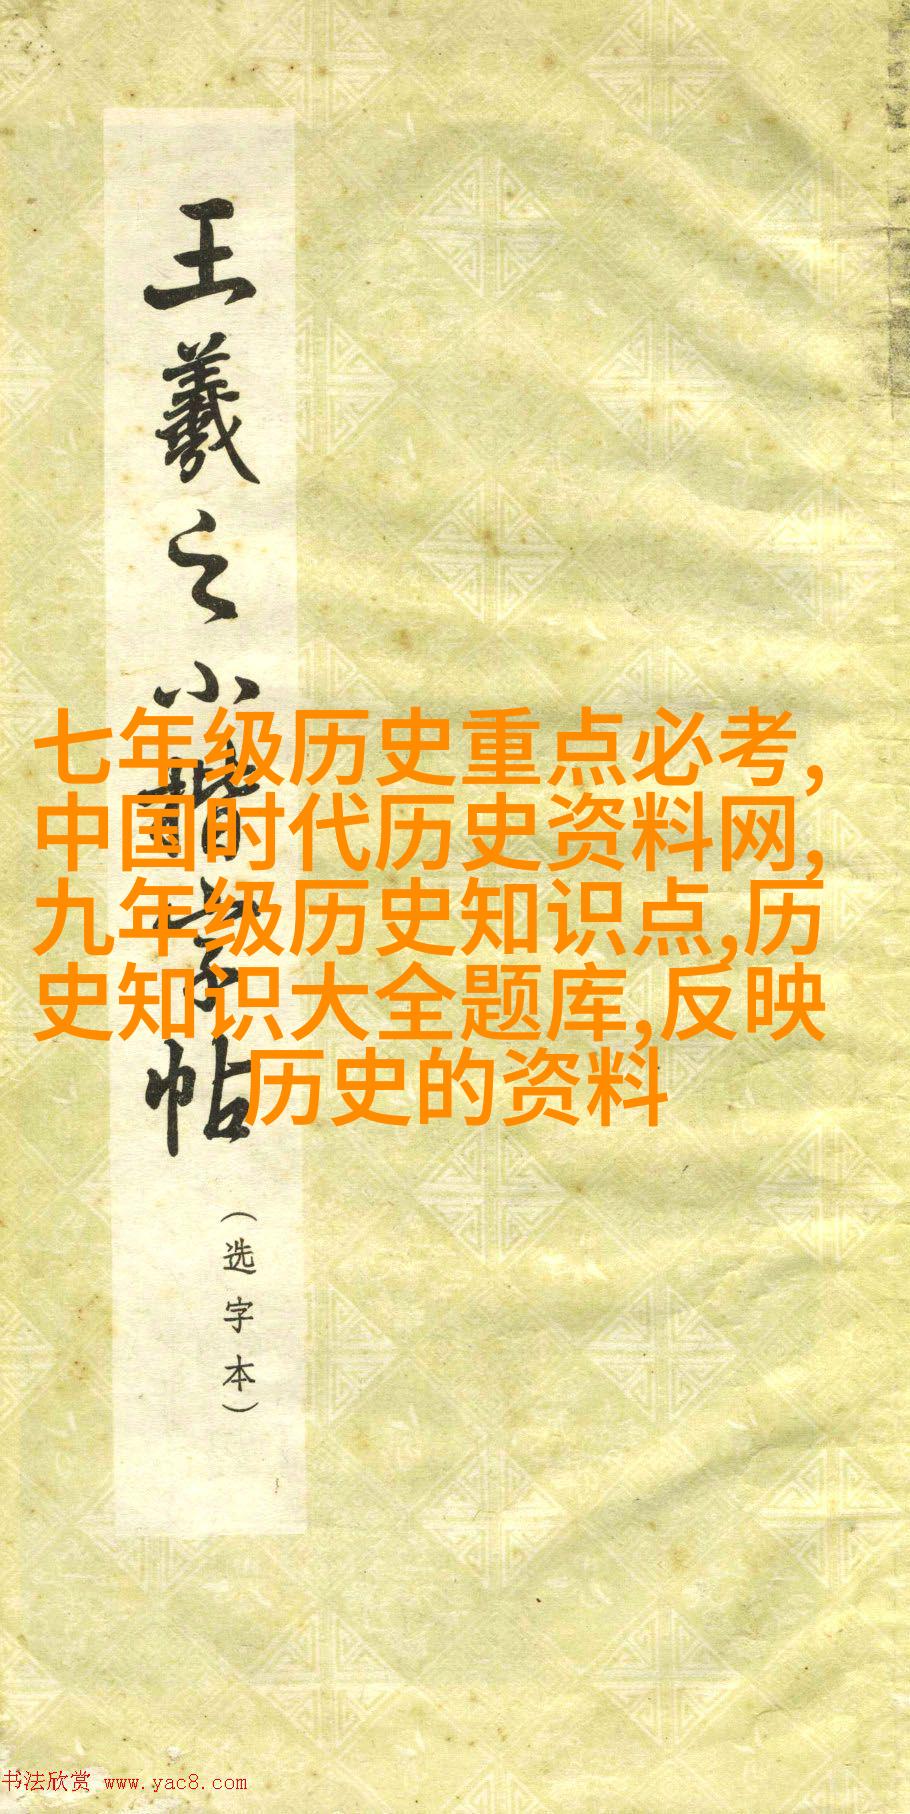 王羲之小楷字帖
(选字本)
七年级历史重点必考,
中国时代历史资料网,
九年级历史知识点,历
史知识大全题库,反映
历史的资料
书法欣赏 www.yac8.com